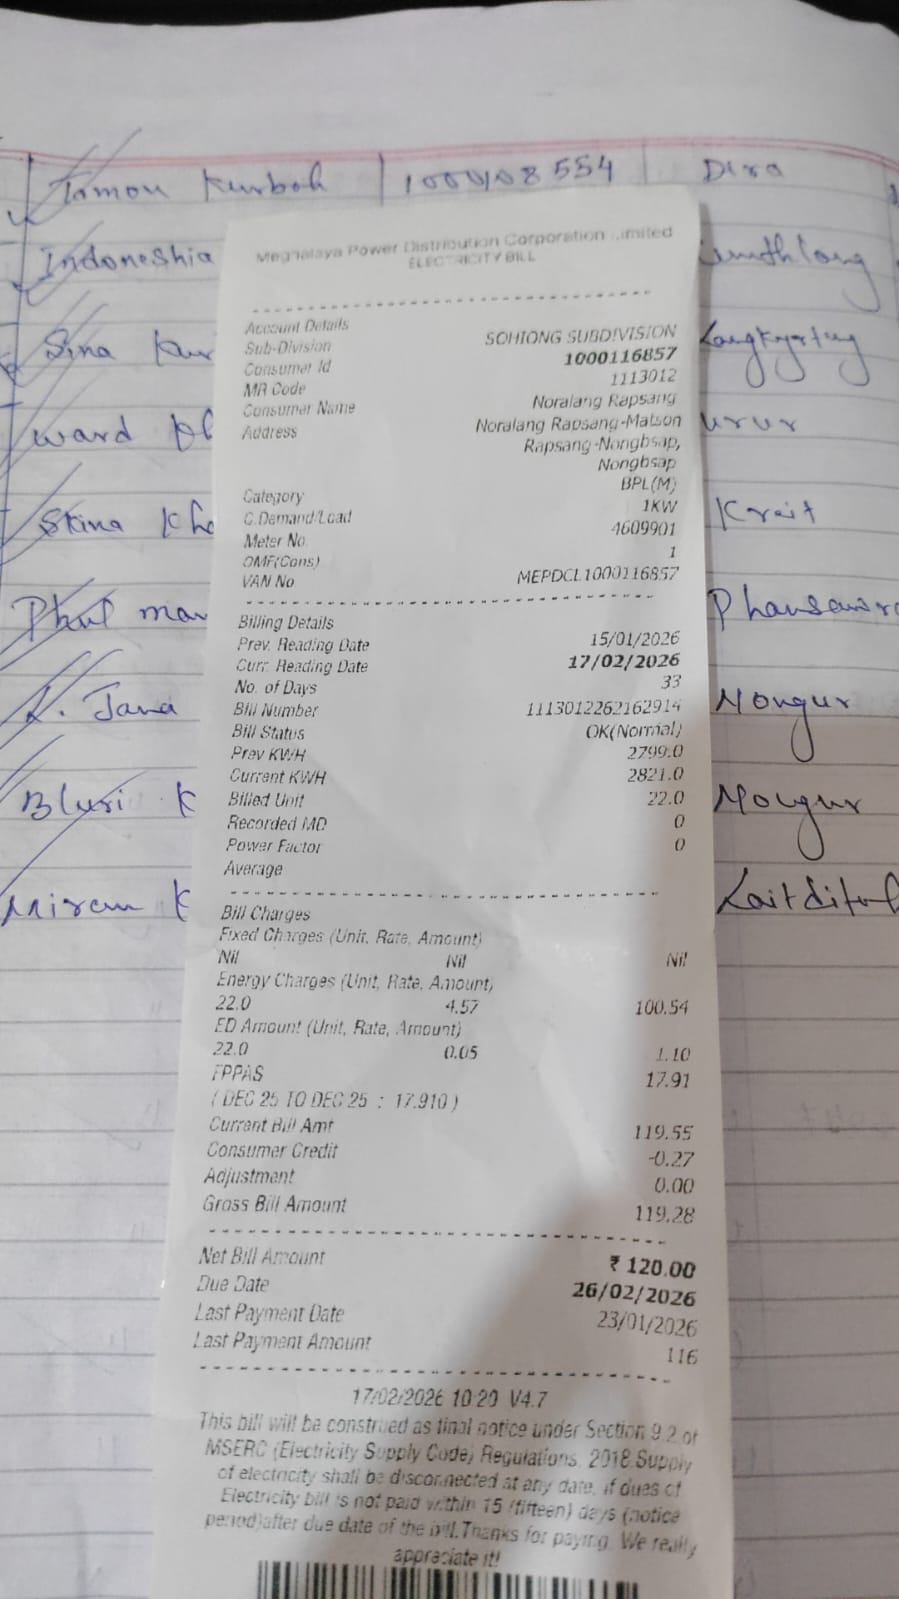 Tamon Kurbah 1000108554 Dira
Indoneshia
Sina Kur
ward
Skina Kha
Phul mar
Jana Mongur
Bluri K
K
Krait
Meghalaya Power Distribution Corporation Limited
ELECTRICITY BILL
Account Details
Sub-Division SOHIONG SUBDIVISION
Consumer Id 1000116857
MR Code 1113012
Consumer Name Noralang Rapsang
Address Noralang Rapsang-Matson
Rapsang-Nongbsap,
Nongbsap
Category BPL(M)
C.Demand/Load 1KW
Meter No. 4609901
OMF(Cons) 1
VAN No MEPDCL1000116857
Billing Details
Prev. Reading Date 15/01/2026
Curr. Reading Date 17/02/2026
No. of Days 33
Bill Number 1113012262162914
Bill Status OK(Normal)
Prev KWH 2799.0
Current KWH 2821.0
Billed Unit 22.0
Recorded MD 0
Power Factor 0
Average
Bill Charges
Fixed Charges (Unit, Rate, Amount)
Nil Nil Nil
Energy Charges (Unit, Rate, Amount)
22.0 4.57 100.54
ED Amount (Unit, Rate, Amount)
22.0 0.05 1.10
FPPAS 17.91
( DEC 25 TO DEC 25 : 17.910 )
Current Bill Amt 119.55
Consumer Credit -0.27
Adjustment 0.00
Gross Bill Amount 119.28
Net Bill Amount ₹ 120.00
Due Date 26/02/2026
Last Payment Date 23/01/2026
Last Payment Amount 116
17/02/2026 10:29 V4.7
This bill will be construed as final notice under Section 9.2 of
MSERC (Electricity Supply Code) Regulations, 2018.Supply
of electricity shall be disconnected at any date, if dues of
Electricity bill is not paid within 15 (fifteen) days (notice
period)after due date of the bill.Thanks for paying. We really
appreciate it!